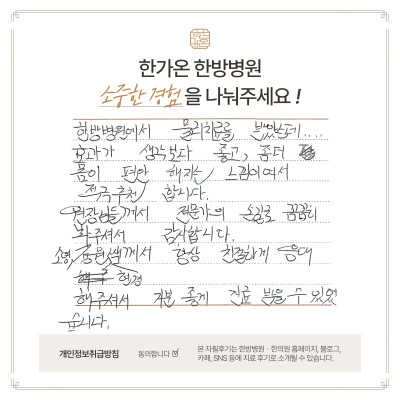 한가온 한방병원
소중한 경험을 나눠주세요!
한방병원에서 물리치료를 받았는데....
효과가 생각보다 좋고, 좀더
몸이 편안해지는 느낌이여서
적극추천 합니다.
원장님들께서 전문가의 손길로 꼼꼼히
봐주셔서 감사합니다.
소영, 쌤께서 항상 친절하게 응대
현경
해주셔서 기분 좋게 진료 받을 수 있었
습니다.
개인정보취급방침 동의합니다 ☑
본 자필후기는 한방병원 · 한의원 홈페이지, 블로그,
카페, SNS 등에 치료 후기로 소개될 수 있습니다.